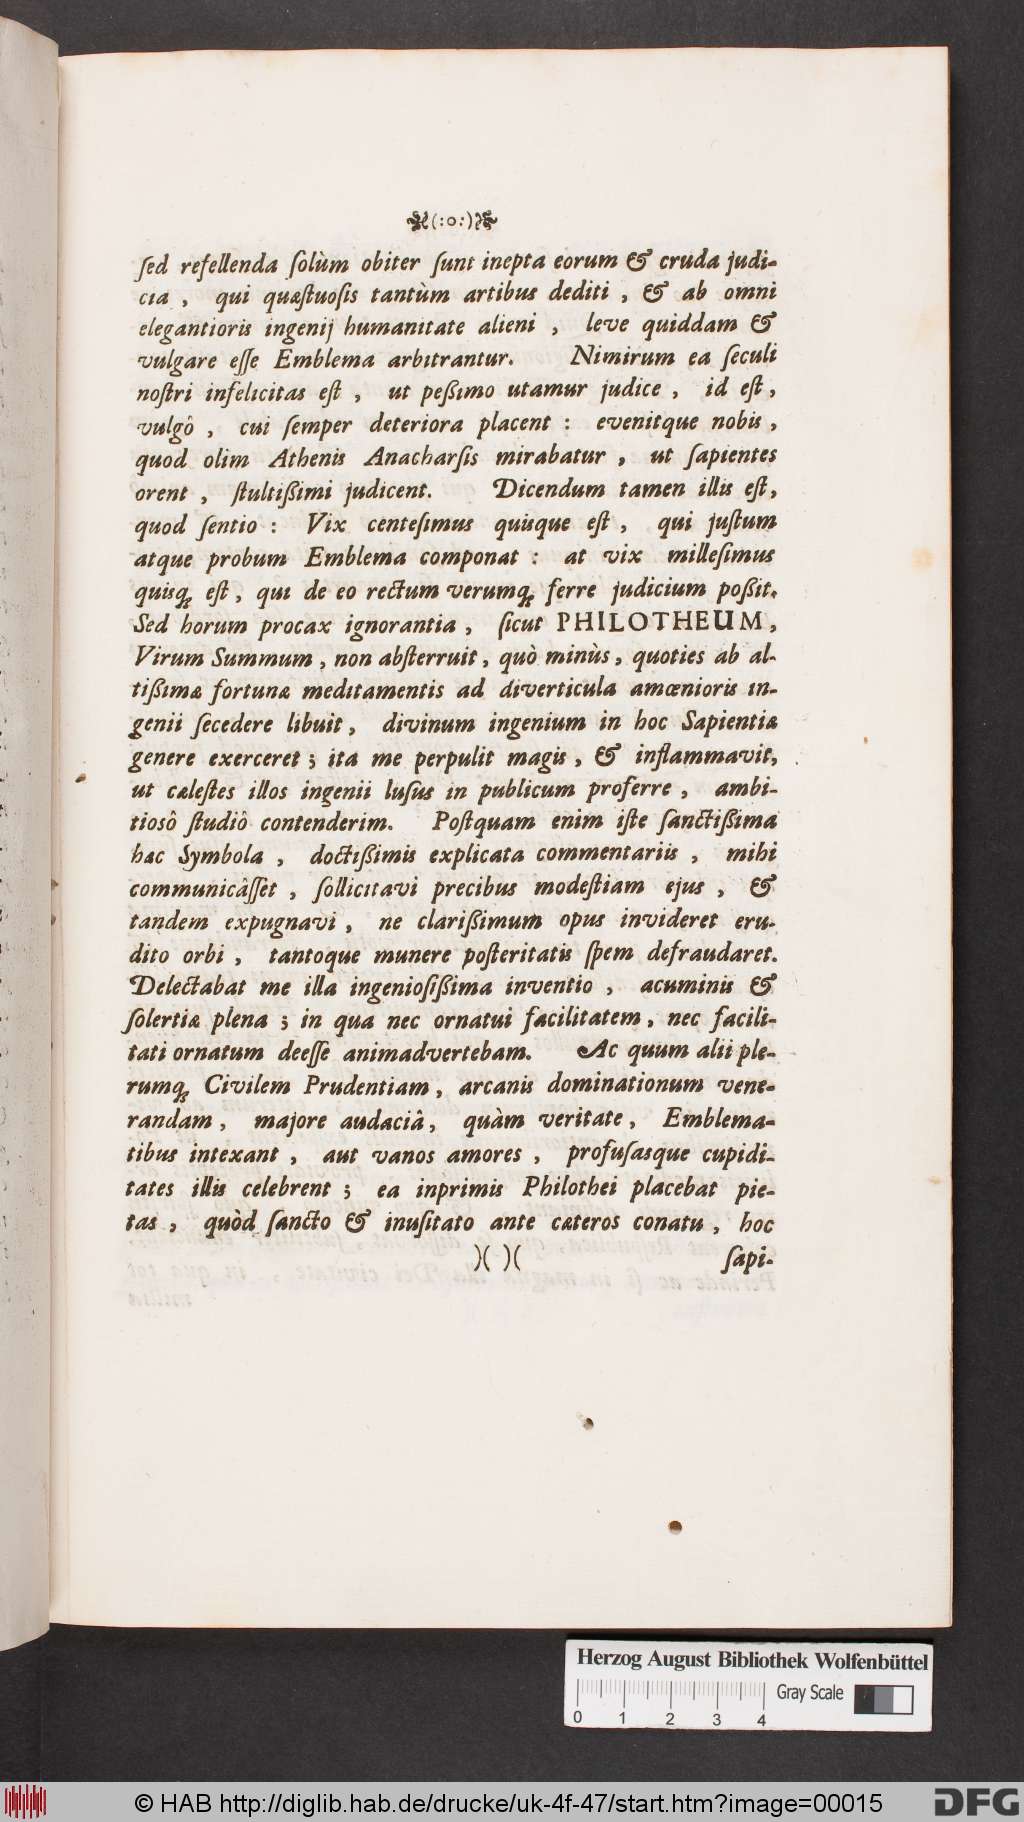 (:o:)
ſed refellenda ſolùm obiter ſunt inepta eorum & cruda judi-
cia , qui quæſtuoſis tantùm artibus dediti , & ab omni
elegantioris ingenij humanitate alieni , leve quiddam &
vulgare eſſe Emblema arbitrantur. Nimirum ea ſeculi
noſtri infelicitas eſt , ut peßimo utamur judice , id eſt,
vulgô , cui ſemper deteriora placent : evenitque nobis ,
quod olim Athenis Anacharſis mirabatur , ut ſapientes
orent , ſtultißimi judicent. Dicendum tamen illis eſt,
quod ſentio : Vix centeſimus quisque eſt , qui juſtum
atque probum Emblema componat : at vix milleſimus
quisq; eſt , qui de eo rectum verumq; ferre judicium poßit.
Sed horum procax ignorantia , ſicut PHILOTHEUM,
Virum Summum , non abſterruit , quò minùs , quoties ab al-
tißimæ fortunæ meditamentis ad diverticula amœnioris in-
genii ſecedere libuit , divinum ingenium in hoc Sapientiæ
genere exerceret ; ita me perpulit magis , & inflammavit,
ut cæleſtes illos ingenii luſus in publicum proferre , ambi-
tioſô ſtudiô contenderim. Poſtquam enim iſte ſanctißima
hæc Symbola , doctißimis explicata commentariis , mihi
communicâſſet , ſollicitavi precibus modeſtiam ejus , &
tandem expugnavi , ne clarißimum opus invideret eru-
dito orbi , tantoque munere poſteritatis ſpem defraudaret.
Delectabat me illa ingenioſißima inventio , acuminis &
ſolertiæ plena ; in qua nec ornatui facilitatem , nec facili-
tati ornatum deeſſe animadvertebam. Ac quum alii ple-
rumq; Civilem Prudentiam , arcanis dominationum vene-
randam , majore audaciâ, quàm veritate, Emblema-
tibus intexant , aut vanos amores , profuſasque cupidi-
tates illis celebrent ; ea inprimis Philothei placebat pie-
tas , quòd ſancto & inuſitato ante cæteros conatu , hoc
)( )( ſapi-
Herzog August Bibliothek Wolfenbüttel
Gray Scale
0 1 2 3 4
© HAB http://diglib.hab.de/drucke/uk-4f-47/start.htm?image=00015
DFG